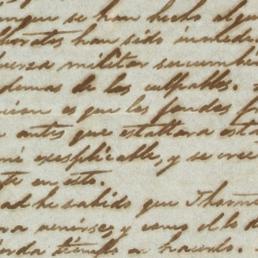 unque se han hecho algu
han sido inmedi
uerza militar sucumbi
demas de los culpables.
es que los fondos
antes que estallara esta
mé inesplicable, y se cree
te en esto.
ad he sabido que Thom
ra venirse, y como el lo d
en hacerlo.